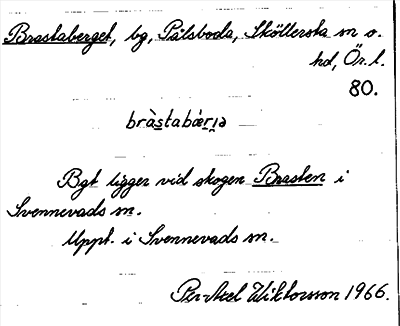 Brastaberget, bg, Pålsboda, Sköllersta sn o.
hd, Ör. l.
80.
bràstabær̩ɩə
Bgt ligger vid skogen Brasten i
Svennevads sn.
Uppt. i Svennevads sn.
Per-Axel Wiktorsson 1966.